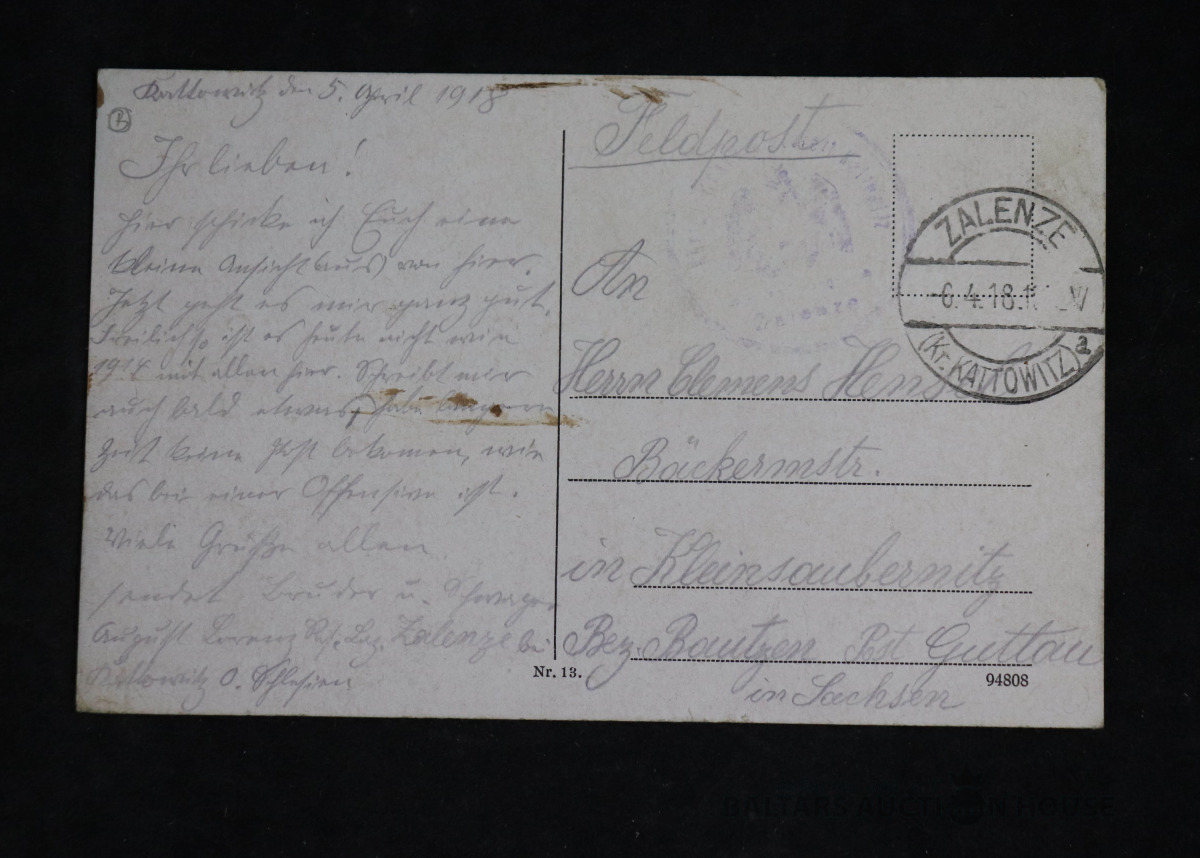 Kattowitz den 5. April 1918
Ihr lieben!
Hier schicke ich Euch eine
kleine Ansicht (aus) von hier.
Jetzt geht es mir ganz gut.
Freilich so ist es heute nicht wie
1914 mit allen hier. Schreibt mir
auch bald etwas, habe
Zeit keine Post bekomen, wie
das bei einer Offensive ist.
Viele Grüße allen
sendet Bruder u. Schwager
August Lorenz Res. Laz. Zalenze bei
Kattowitz O. Schlesien
Feldpost
An
Herrn Clemens
Bäckermstr.
in Kleinsaubernitz
Bez. Bautzen Post Guttau
in Sachsen
ZALENZE
6.4.18.
(Kr. KATTOWITZ) a
Zalenze
Nr. 13.
94808
BALTARS AUCTION HOUSE